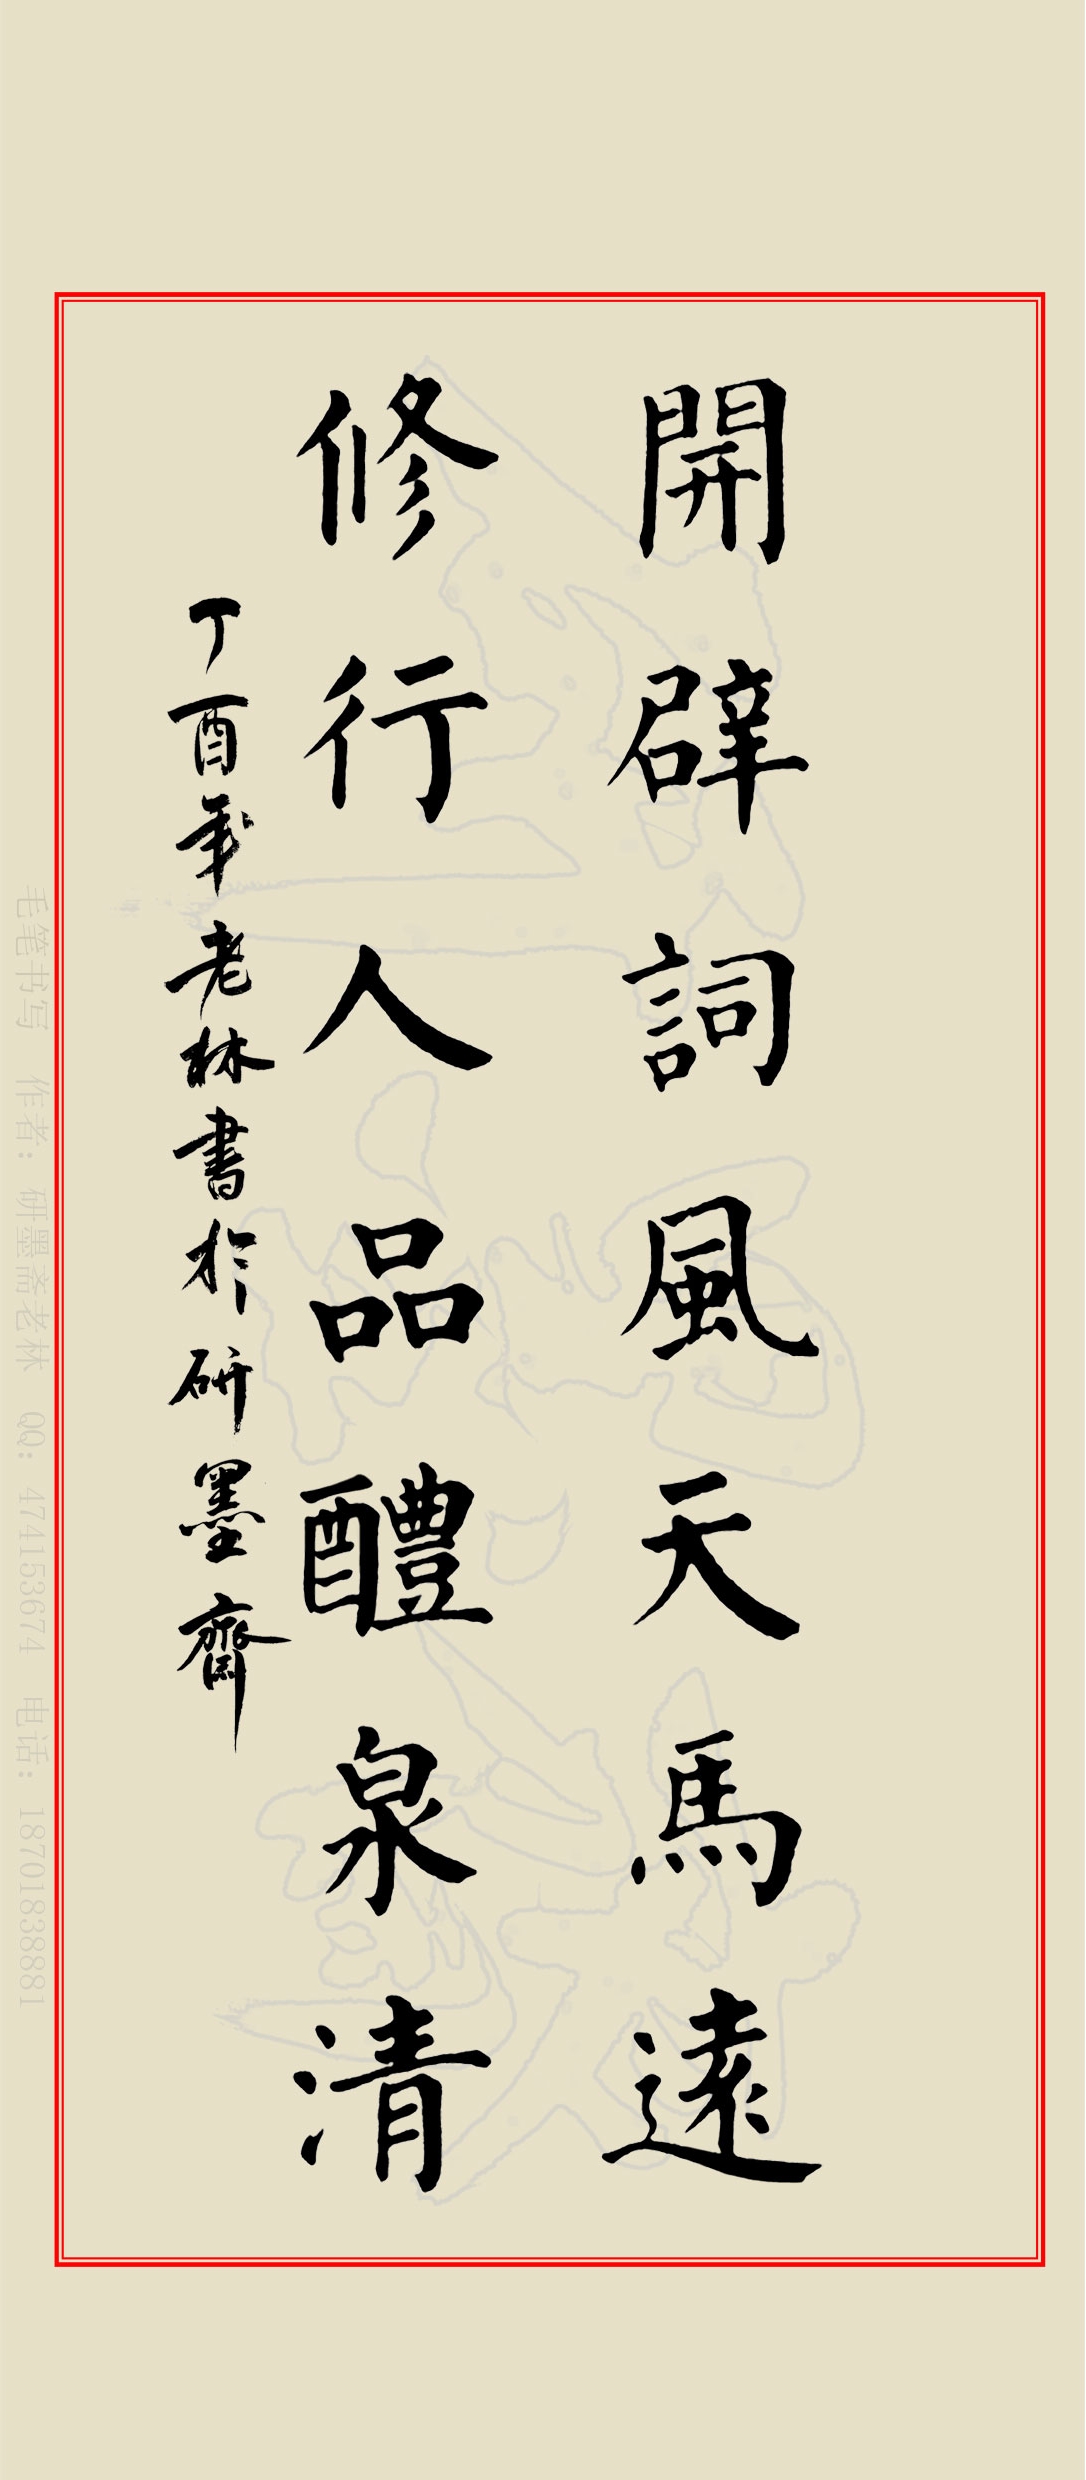 開辟詞風天馬遠
修行人品醴泉清
丁酉年老林書於研墨齋
毛笔书写 作者：研墨斋老林 QQ：474153674 电话：18701838881